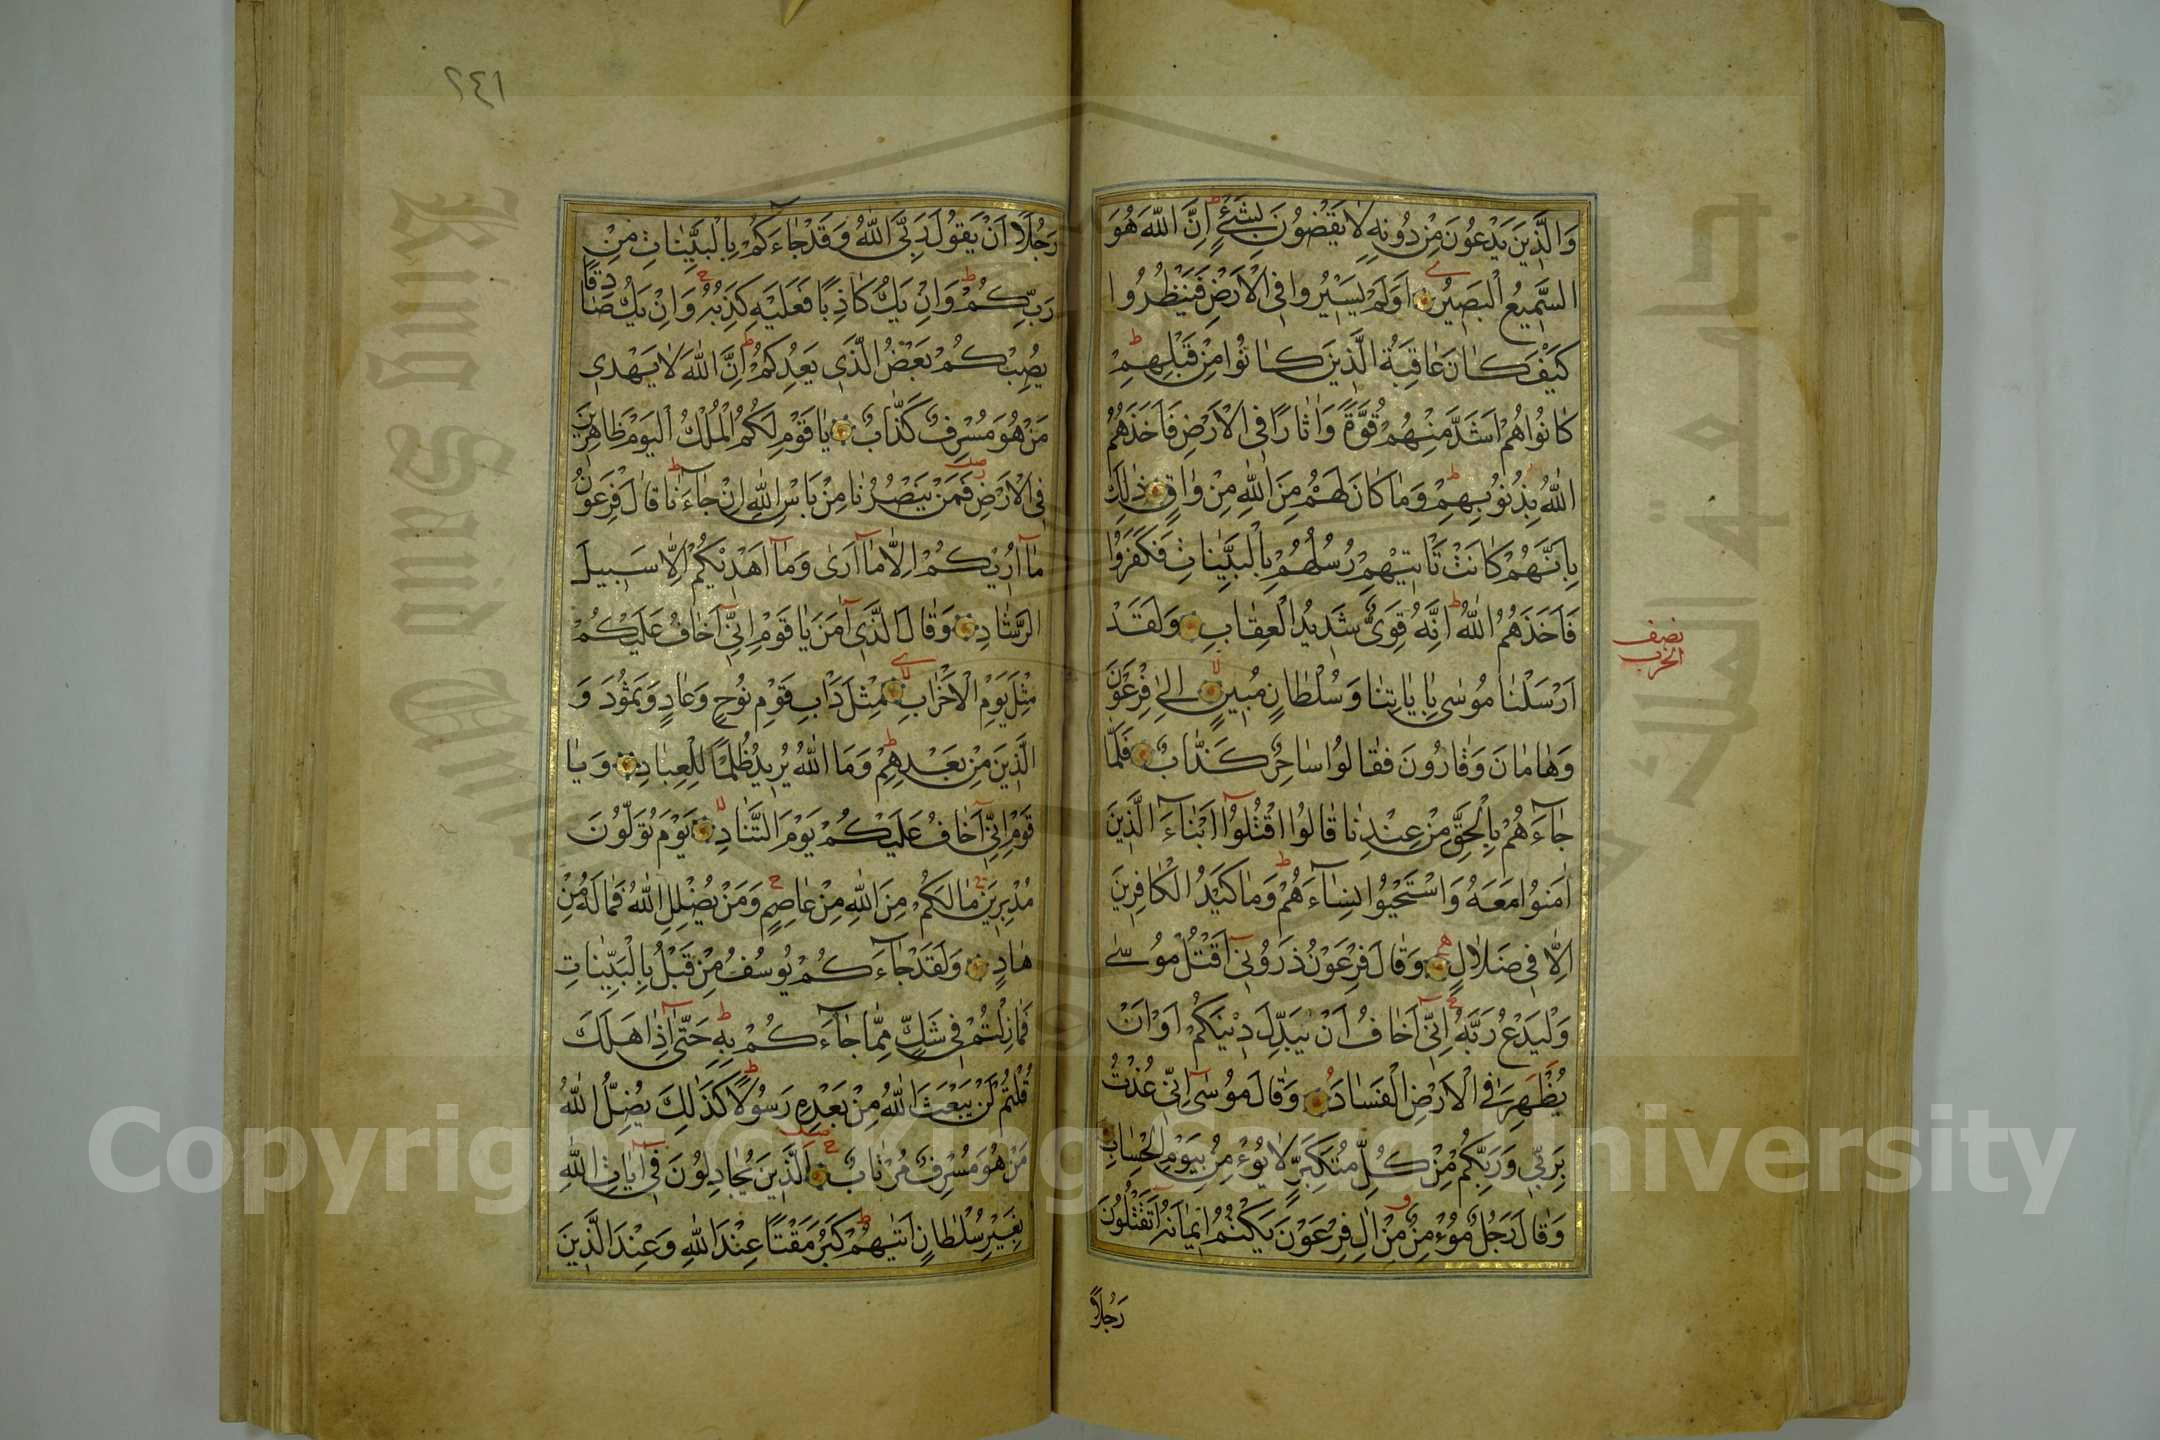 وَالَّذِينَ يَدْعُونَ مِنْ دُونِهِ لَا يَقْضُونَ بِشَيْءٍ اِنَّ اللّٰهَ هُوَ
السَّمِيعُ الْبَصِيرُ اَوَلَمْ يَسِيْرُوا فِي الْاَرْضِ فَيَنْظُرُوا
كَيْفَ كَانَ عَاقِبَةُ الَّذِينَ كَانُوا مِنْ قَبْلِهِمْ
كَانُوا هُمْ اَشَدَّ مِنْهُمْ قُوَّةً وَاٰثَارًا فِي الْاَرْضِ فَاَخَذَهُمُ
اللّٰهُ بِذُنُوْبِهِمْ وَمَا كَانَ لَهُمْ مِنَ اللّٰهِ مِنْ وَاقٍ ذٰلِكَ
بِاَنَّهُمْ كَانَتْ تَاْتِيْهِمْ رُسُلُهُمْ بِالْبَيِّنَاتِ فَكَفَرُوْا
فَاَخَذَهُمُ اللّٰهُ اِنَّهُ قَوِيٌّ شَدِيدُ الْعِقَابِ وَلَقَدْ
نصف
الحزب
اَرْسَلْنَا مُوسٰى بِاٰيَاتِنَا وَسُلْطَانٍ مُبِينٍ اِلٰى فِرْعَوْنَ
وَهَامَانَ وَقَارُونَ فَقَالُوا سَاحِرٌ كَذَّابٌ فَلَمَّا
جَآءَهُمْ بِالْحَقِّ مِنْ عِنْدِنَا قَالُوا اقْتُلُوٓا اَبْنَآءَ الَّذِينَ
اٰمَنُوا مَعَهُ وَاسْتَحْيُوا نِسَآءَهُمْ وَمَا كَيْدُ الْكَافِرِينَ
اِلَّا فِي ضَلَالٍ وَقَالَ فِرْعَوْنُ ذَرُوْنِيٓ اَقْتُلْ مُوْسٰى
وَلْيَدْعُ رَبَّهُ اِنِّيٓ اَخَافُ اَنْ يُبَدِّلَ دِيْنَكُمْ اَوْ اَنْ
يُظْهِرَ فِي الْاَرْضِ الْفَسَادَ وَقَالَ مُوسٰىٓ اِنِّي عُذْتُ
بِرَبِّي وَرَبِّكُمْ مِنْ كُلِّ مُتَكَبِّرٍ لَا يُؤْمِنُ بِيَوْمِ الْحِسَابِ
وَقَالَ رَجُلٌ مُؤْمِنٌ مِنْ اٰلِ فِرْعَوْنَ يَكْتُمُ اِيمَانَهُ اَتَقْتُلُونَ
رَجُلًا
٢٤١
رَجُلًا اَنْ يَقُولَ رَبِّيَ اللّٰهُ وَقَدْ جَآءَكُمْ بِالْبَيِّنَاتِ مِنْ
رَبِّكُمْ وَاِنْ يَكُ كَاذِبًا فَعَلَيْهِ كَذِبُهُ وَاِنْ يَكُ صَادِقًا
يُصِبْكُمْ بَعْضُ الَّذِي يَعِدُكُمْ اِنَّ اللّٰهَ لَا يَهْدِي
مَنْ هُوَ مُسْرِفٌ كَذَّابٌ يَا قَوْمِ لَكُمُ الْمُلْكُ الْيَوْمَ ظَاهِرِينَ
فِي الْاَرْضِ فَمَنْ يَنْصُرُنَا مِنْ بَاْسِ اللّٰهِ اِنْ جَآءَنَا قَالَ فِرْعَوْنُ
مَآ اُرِيْكُمْ اِلَّا مَآ اَرٰى وَمَآ اَهْدِيْكُمْ اِلَّا سَبِيلَ
الرَّشَادِ وَقَالَ الَّذِيٓ اٰمَنَ يَا قَوْمِ اِنِّيٓ اَخَافُ عَلَيْكُمْ
مِثْلَ يَوْمِ الْاَحْزَابِ مِثْلَ دَاْبِ قَوْمِ نُوْحٍ وَعَادٍ وَثَمُوْدَ وَ
الَّذِينَ مِنْ بَعْدِهِمْ وَمَا اللّٰهُ يُرِيدُ ظُلْمًا لِلْعِبَادِ وَيَا
قَوْمِ اِنِّيٓ اَخَافُ عَلَيْكُمْ يَوْمَ التَّنَادِ يَوْمَ تُوَلُّونَ
مُدْبِرِينَ مَا لَكُمْ مِنَ اللّٰهِ مِنْ عَاصِمٍ وَمَنْ يُضْلِلِ اللّٰهُ فَمَا لَهُ مِنْ
هَادٍ وَلَقَدْ جَآءَكُمْ يُوسُفُ مِنْ قَبْلُ بِالْبَيِّنَاتِ
فَمَا زِلْتُمْ فِي شَكٍّ مِمَّا جَآءَكُمْ بِهِ حَتّٰىٓ اِذَا هَلَكَ
قُلْتُمْ لَنْ يَبْعَثَ اللّٰهُ مِنْ بَعْدِهِ رَسُولًا كَذٰلِكَ يُضِلُّ اللّٰهُ
مَنْ هُوَ مُسْرِفٌ مُرْتَابٌ الَّذِينَ يُجَادِلُونَ فِيٓ اٰيَاتِ اللّٰهِ
بِغَيْرِ سُلْطَانٍ اَتٰيهُمْ كَبُرَ مَقْتًا عِنْدَ اللّٰهِ وَعِنْدَ الَّذِينَ
King Saud University
Copyright © King Saud University